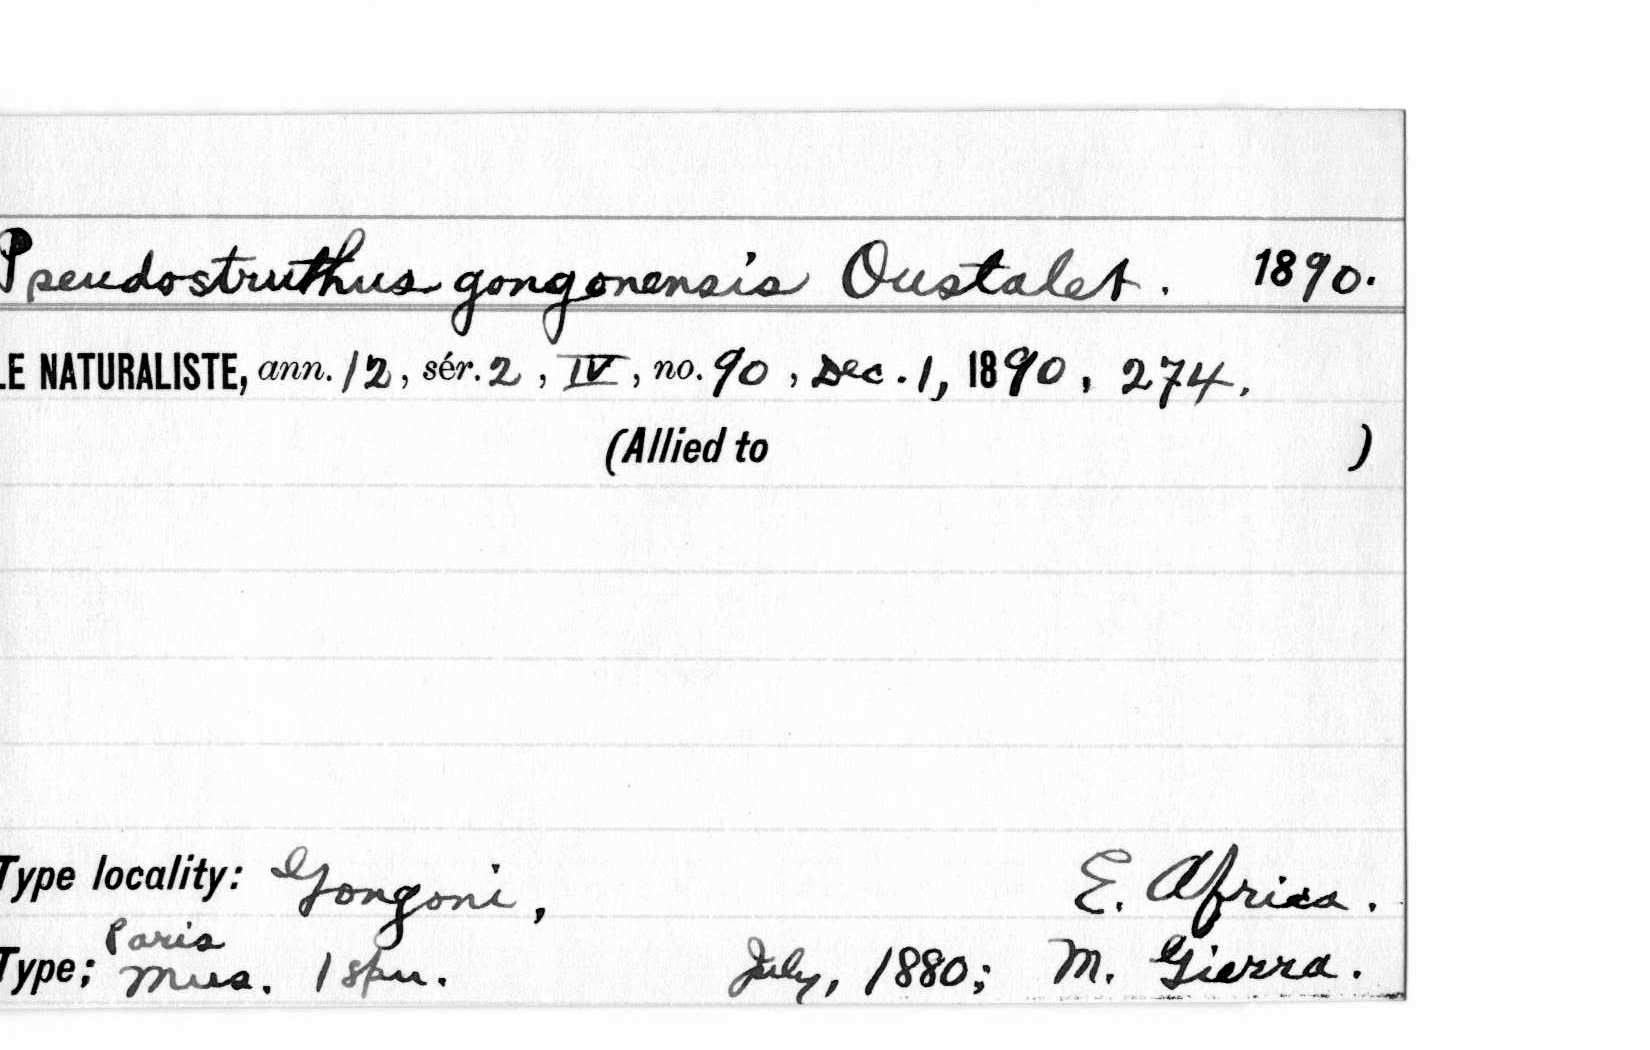 Pseudostruthus gongonensis Oustalet. 1890.
LE NATURALISTE, ann. 12, sér. 2, IV, no. 90, Dec. 1, 1890, 274.
(Allied to )
Type locality: Gongoni, E. Africa.
Paris
Type; Mus. 1 spm. July, 1880; M. Gierra.